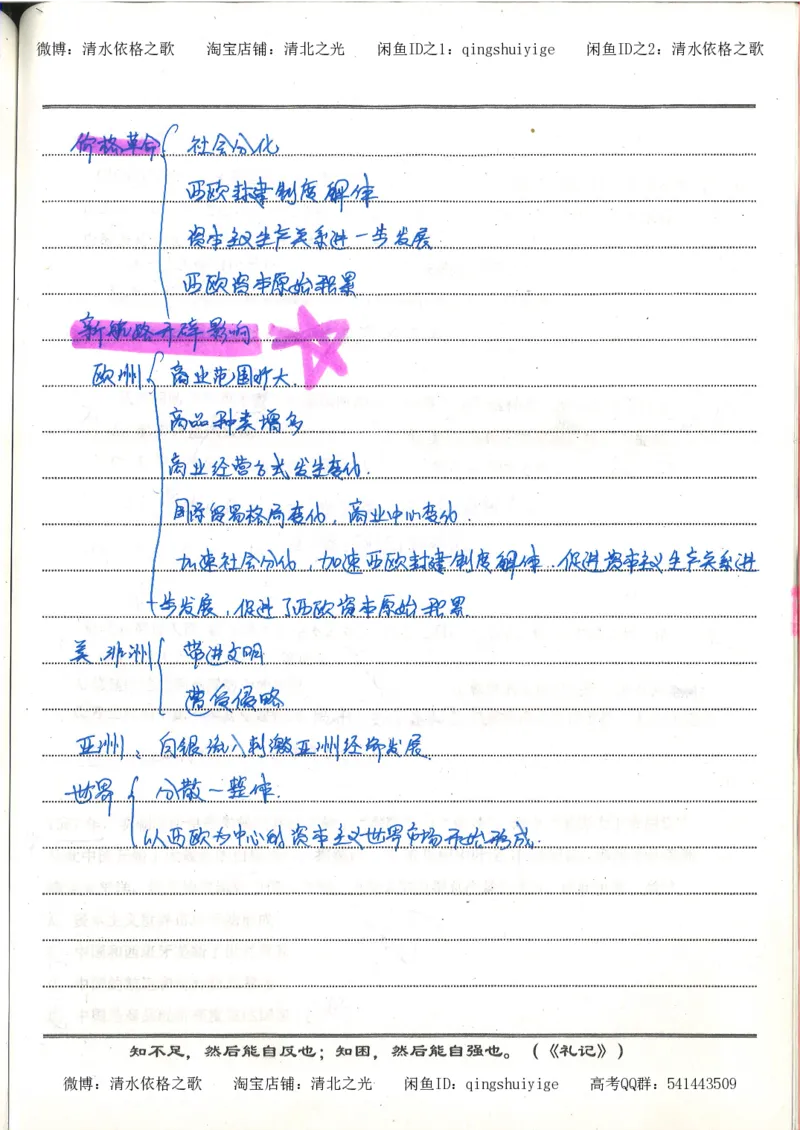 微博：清水依格之歌 淘宝店铺：清北之光 闲鱼ID之1：qingshuiyige 闲鱼ID之2：清水依格之歌
价格革命 社会分化
西欧封建制度解体
资本主义生产关系进一步发展
西欧资本原始积累
新航路开辟影响
欧洲 商业范围扩大.
商品种类增多
商业经营方式发生变化.
国际贸易格局变化，商业中心变化.
加速社会分化，加速西欧封建制度解体.促进资本主义生产关系进
一步发展，促进了西欧资本原始积累.
美、非洲 带进文明
遭受侵略
亚洲、白银流入刺激亚洲经济发展.
世界 分散一整体.
以西欧为中心的资本主义世界市场开始形成.
知不足，然后能自反也；知困，然后能自强也。（《礼记》）
微博：清水依格之歌 淘宝店铺：清北之光 闲鱼ID：qingshuiyige 高考QQ群：541443509